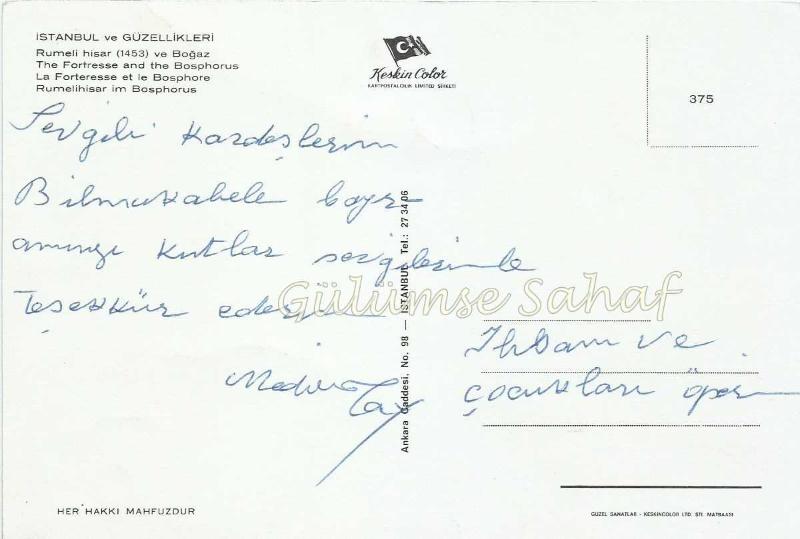 İSTANBUL ve GÜZELLİKLERİ
Rumeli hisar (1453) ve Boğaz
The Fortresse and the Bosphorus
La Forteresse et le Bosphore
Rumelihisar im Bosphorus
Keskin Color
KARTPOSTALCILIK LİMİTED ŞİRKETİ
375
Sevgili Kardeşlerim
Bilmukabele bayr
amınızı kutlar sevgilerimle
Teşekkür ederim
Tay
Gülümse Sahaf
İhsanı ve
çocukları öper
Ankara Caddesi, No. 98 — İSTANBUL Tel.: 27 34 06
HER HAKKI MAHFUZDUR
GÜZEL SANATLAR - KESKİNCOLOR LTD. ŞTİ. MATBAASI